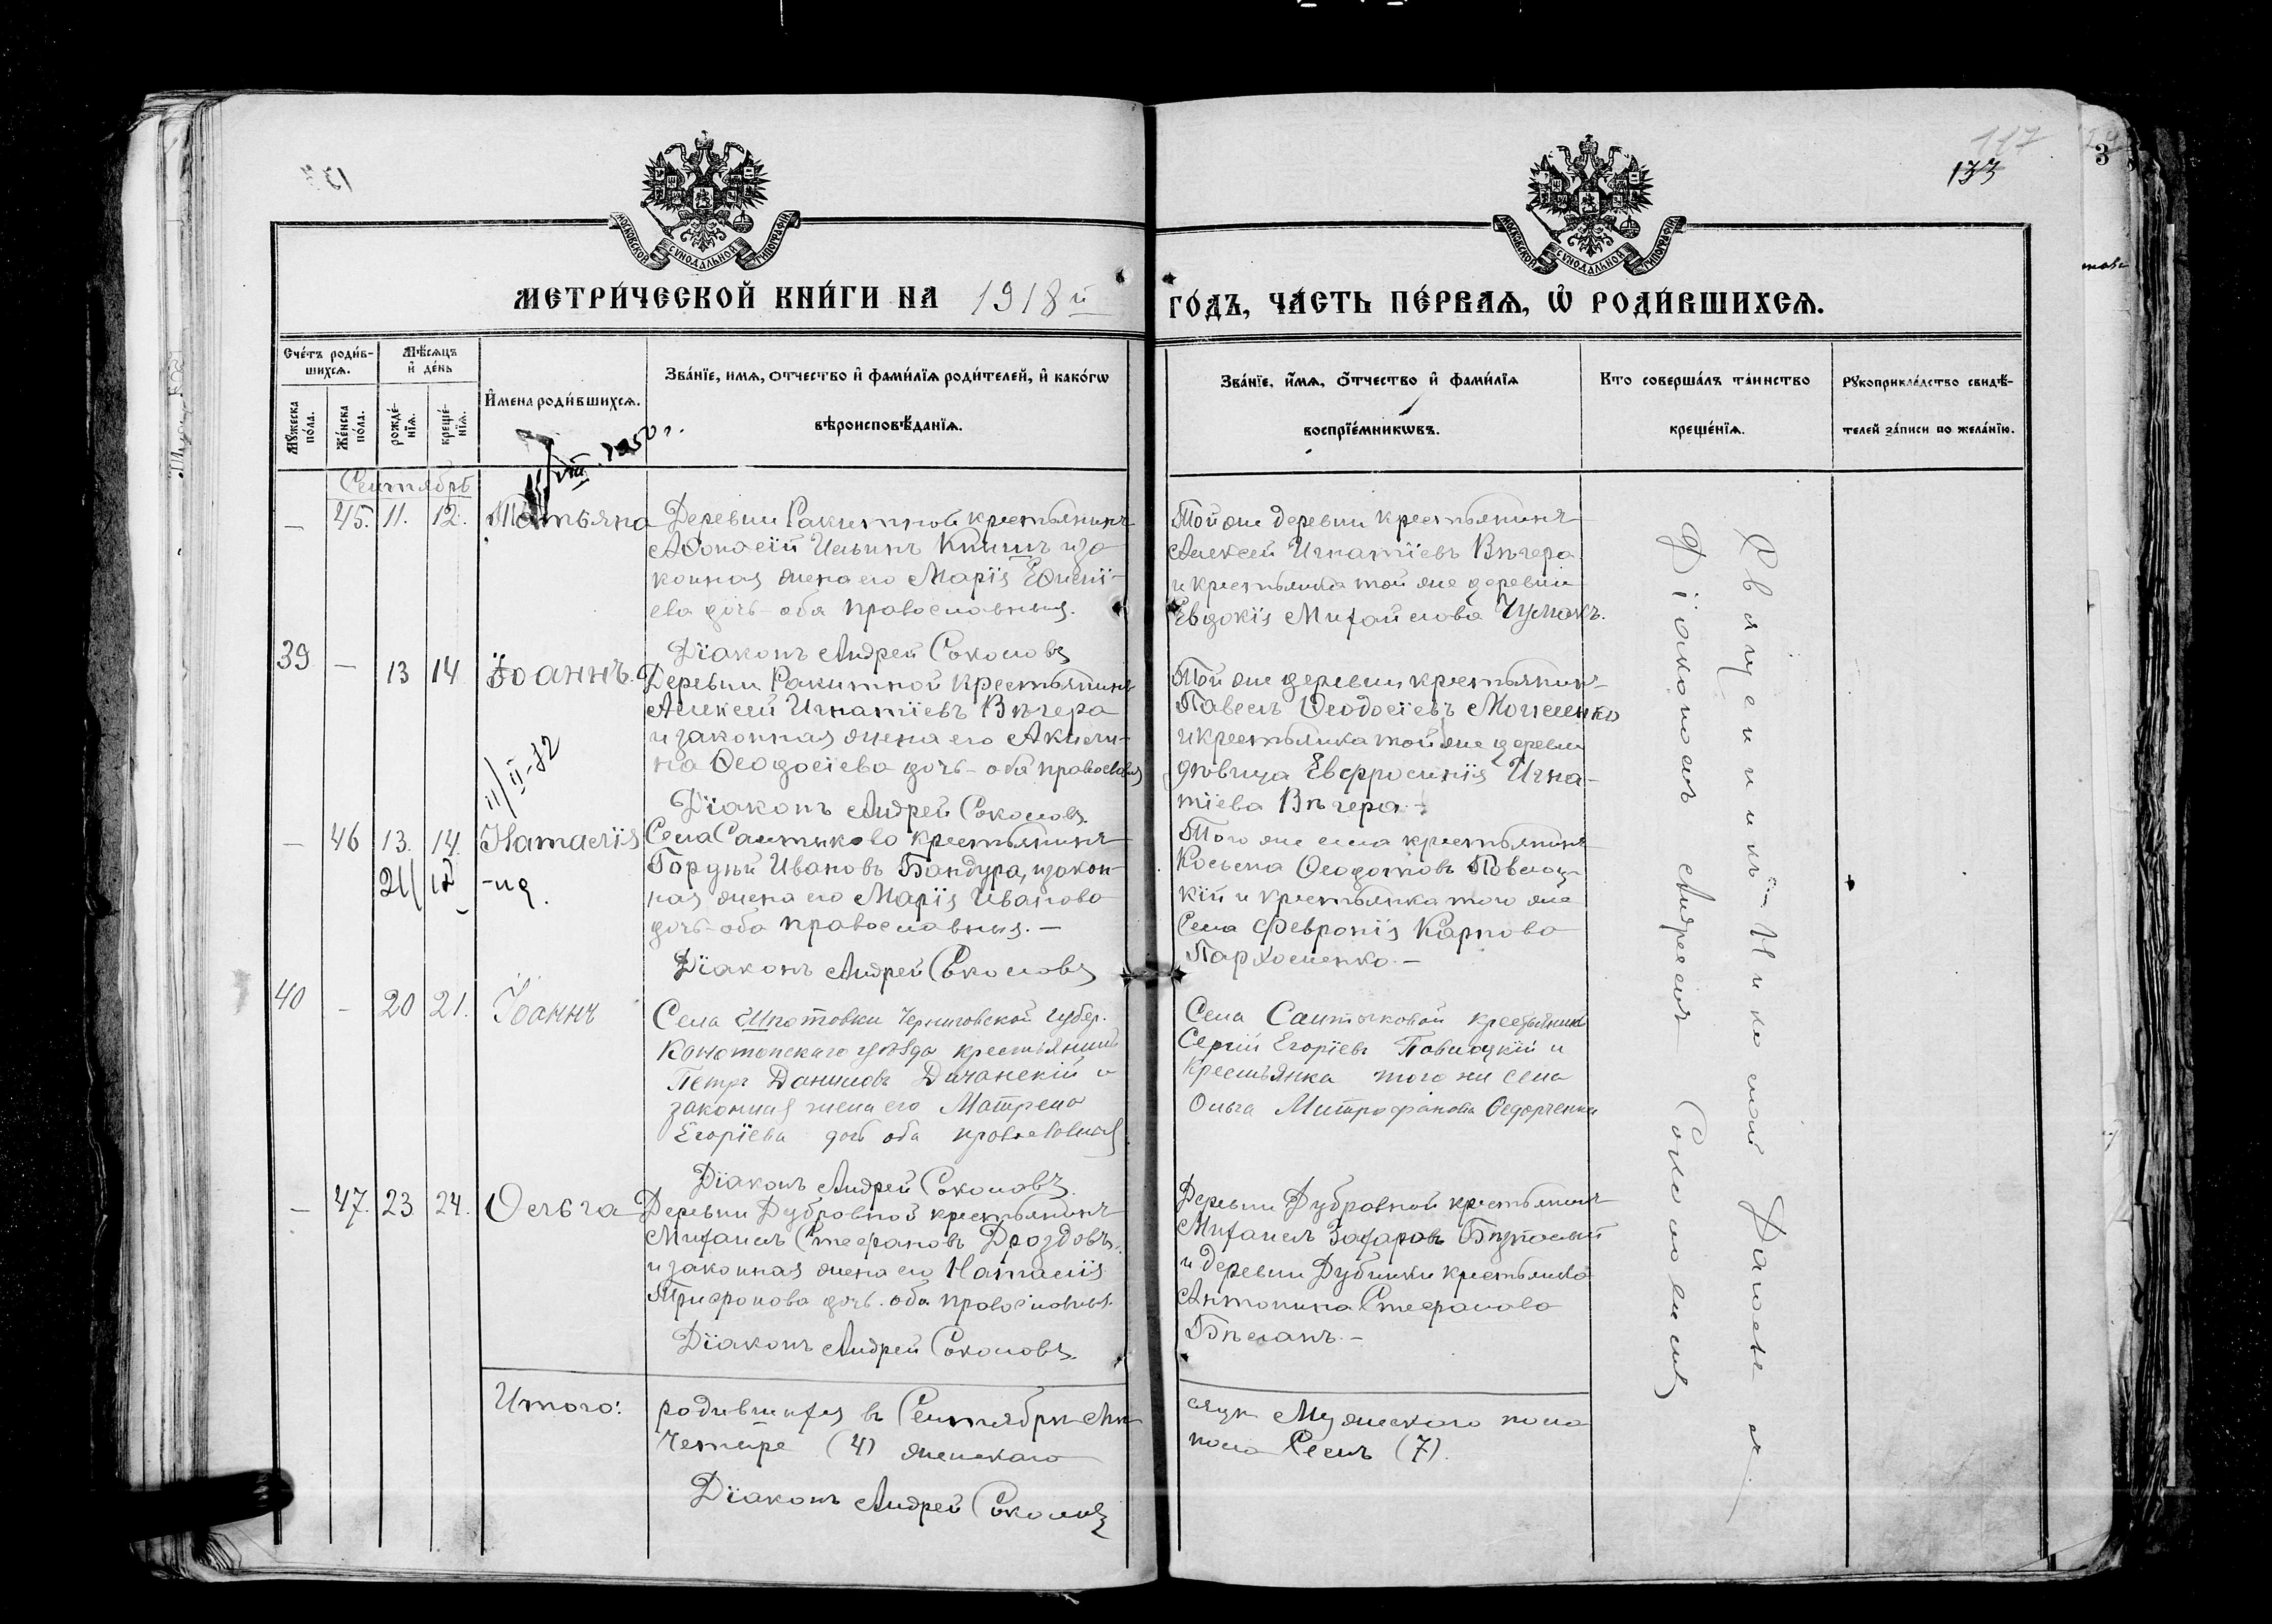 117
133
3
МОСКОВСКОЙ СѴНОДАЛЬНОЙ ТИПОГРАФІИ
МОСКОВСКОЙ СѴНОДАЛЬНОЙ ТИПОГРАФІИ
МЕТРИ́ЧЕСКОЙ КНИ́ГИ НА 1918 й ГО́ДЪ, ЧА́СТЬ ПЕ́РВАЯ, Ѡ РОДИ́ВШИХСЯ.
Сче́тъ роди́в-
шихся.
Му́жеска по́ла.
Же́нска по́ла.
Мѣ́сяцъ
и де́нь
рожде́-
нія.
креще́-
нія.
Имена роди́вшихся.
Зва́ніе, имя, отчество и фами́лія роди́телей, и како́гѡ
вѣроисповѣ́данія.
Зва́ніе, и́мя, о́тчество и фами́лія
воспріе́мникѡвъ.
Кто соверша́лъ та́инство
креще́нія.
Рукоприкла́дство свидѣ́-
телей за́писи по жела́нію.
Сентябрь
11/VIII 1950 г.
— 45. 11. 12. Татьяна
Деревни Ракитной крестьянинъ
Аѳонасій Ильинъ Книшъ и за
конная жена его Марія Ефимі-
ева дочь - оба православныя.
Діаконъ Андрей Соколовъ
Той же деревни крестьянинъ
Алексей Игнатіевъ Вѣчера
и крестьянка той же деревни
Евдокія Михайлова Чумакъ.
39 — 13 14 Іоаннъ.
Деревни Ракитной крестьянинъ
Алексей Игнатіевъ Вѣчера
и законная жена его Акили-
на Ѳеодосіева дочь - оба православныя
Діаконъ Андрей Соколовъ
Той же деревни крестьянинъ
Павелъ Ѳеодосіевъ Моисеенко
и крестьянка той же деревни
дѣвица Евфросинія Игна-
тіева Вѣчера. -
11/II-52
— 46 13. 14. Наталія
Села Салтыково крестьянинъ
Гордѣй Ивановъ Бандура, и закон-
ная жена его Марія Иванова
дочь - оба православныя. —
Діаконъ Андрей Соколовъ
Того же села крестьянинъ
Косьма Ѳеодотовъ Повлоц-
кій и крестьянка того же
Села Февронія Карпова
Пархоменко. —
40 — 20 21. Іоаннъ
Села Шпотовки Черниговской губер.
Конотопскаго уѣзда крестьянинъ
Петръ Даниловъ Дичанскій и
законная жена его Матрена
Егоріева дочь оба православныя
Діаконъ Андрей Соколовъ.
Села Салтыковой крестьянинъ
Сергій Егоріевъ Павлоцкій и
Крестьянка того же села
Ольга Митрофанова Ѳедорченко
— 47. 23 24. Ольга
Деревни Дубровной крестьянинъ
Михаилъ Стефановъ Дроздовъ.
и законная жена его Наталія
Трифонова дочь. оба православныя.
Діаконъ Андрей Соколовъ.
Деревни Дубровной крестьянинъ
Михаилъ Захаровъ
и деревни Дубинки крестьянка
Антонина Стефанова
Бѣланъ. —
Священникъ Николай
Діакономъ Андреемъ Соколовымъ
Итого: родившихся въ Сентябрѣ мѣ- сяцѣ Мужескаго пола
Четыре (4) женскаго пола Семь (7).
Діаконъ Андрей Соколовъ